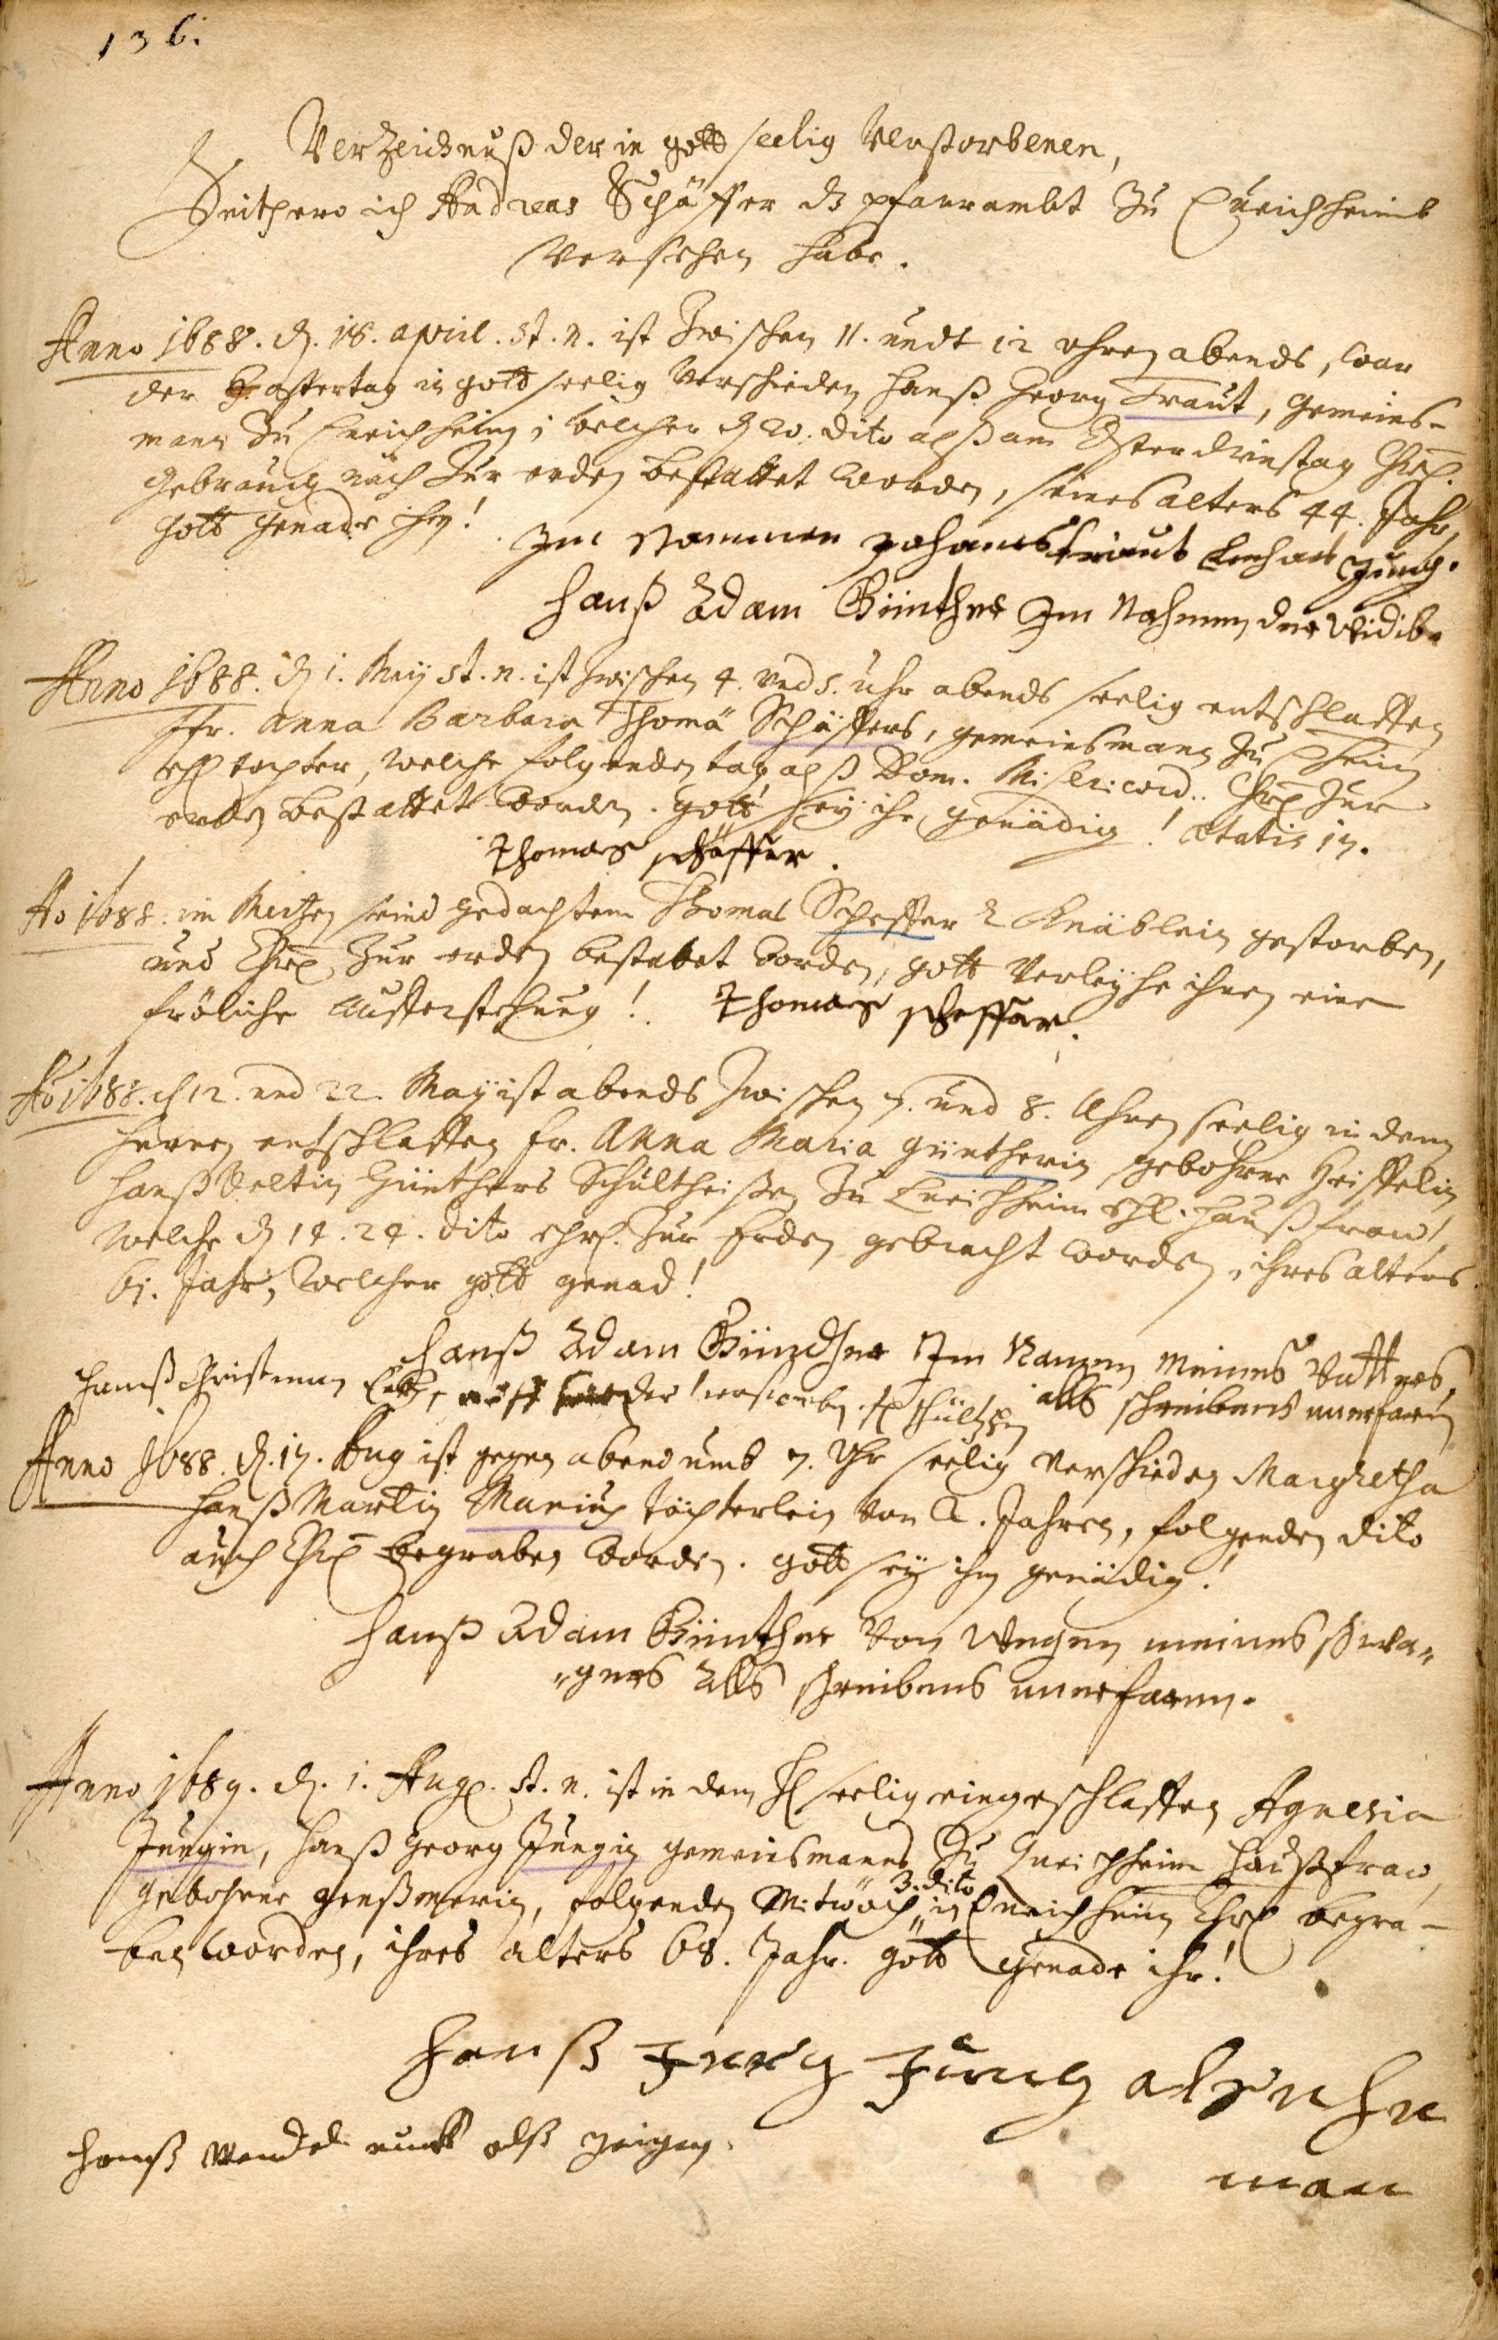 136.
Verzeichnuß der in gott seelig Verstorbenen,
Seithero ich Andreas Schäffer ds pfarrambt Zu Queichheimb
versehen habe.
Anno 1688. d. 18. april. st. n. ist Zwischen 11. undt 12 uhren abends, war
der ostertag in gott seelig Verschieden Hanß Georg Traut, gemeins-
mann Zu Queichheim, welcher d. 20. dito alß am Osterdinstag Christl.
gebrauch nach Zur erden bestattet worden, seines alters 44. Jahr,
Gott genade ihm!
Im Nammen Johannes traut Jung.
Hanß Adam Günther Im Nahmen der Widibe
Anno 1688. d. 1. Maij st. n. ist zwischen 4. und 5. uhr abends seelig entschlaffen
Jfr. Anna Barbara Thomä Schäffers, gemeinsmann Zu Qheim
ehl. tochter, welche folgenden tag alß Dom. Misericord. Christl. Zur
erden bestattet worden. Gott sey ihr genädig! Ætatis 17.
Thomas schäffer.
Ao 1688. im Mertzen seind gedachtem Thomas Scheffer 2 Knäblein gestorben,
und Christl. Zur erden bestatet worden, gott Verleyhe ihnen eine
fröliche Aufferstehung! Thomas scheffer.
Ao 1688. d. 12. und 22. Maÿ ist abends Zwischen 7. und 8. Uhren seelig in dem
Herren entschlaffen Fr. Anna Maria Güntherin gebohrne
Hanß Veltin Günthers Schultheißen Zu Queichheim ehl. Haußfraw,
Welche d. 14. 24. dito chrl. Zur Erden gebracht worden, ihres alters
61. Jahr, Welcher gott genad!
Hanß Adam Günther Im Namen Meines Vatters,
alls schreibens unerfaren
Hanß Christman
Anno 1688. d. 17. Aug ist gegen abend umb 7. Uhr seelig verschieden Margretha
Hanß Martin töchterlein von 2. Jahren, folgenden dito
auch Christl. begraben worden. Gott sey ihm genädig!
Hanß Adam Günther Von Wegen meines schwa„
„gers Alls schreibens unerfaren.
Anno 1689. d. 1. Aug. st. n. ist in dem H. seelig eingeschlaffen Agnesia
Jungin, Hanß Georg Jungen gemeinsmanns Zu Queichheim Haußfraw,
3. dito
gebohrne, folgenden Mitwoch in Queichheim Chrl. begra-
ben worden, ihres alters 68. Jahr. Gott Genade ihr!
Hanß Jerg Jung als ihr
man
Hanß Wendel alß Zeigen.